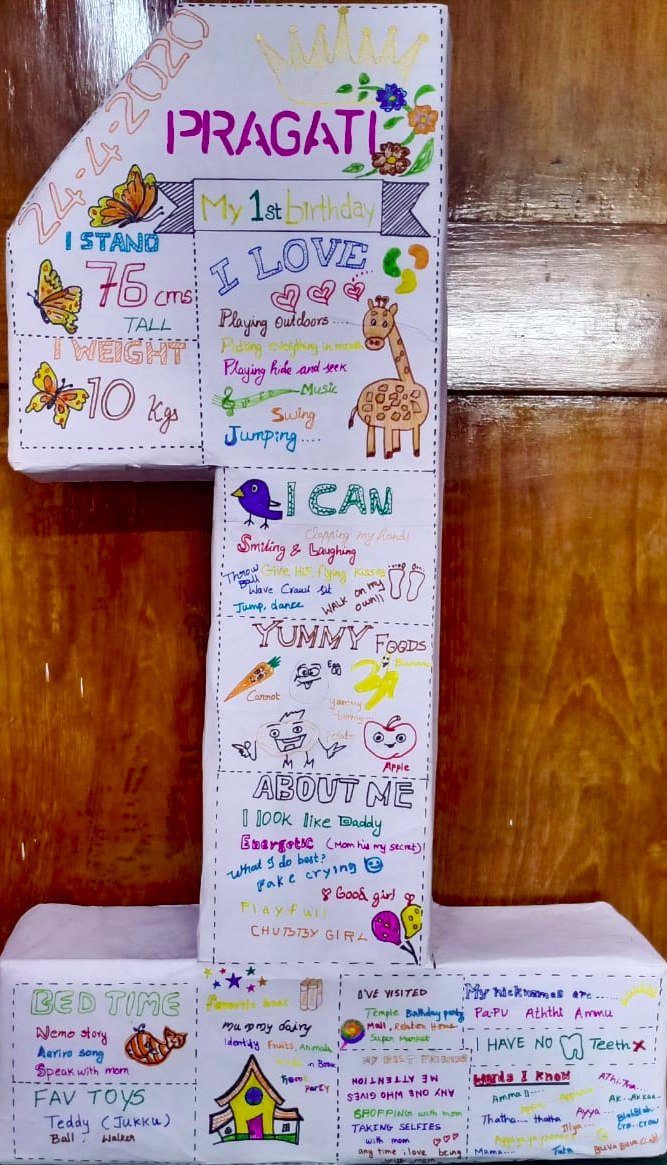 24-4-2020
PRAGATI
My 1st birthday
I STAND
76 cms
TALL
I WEIGHT
10 Kgs
I LOVE
Playing outdoors....
Putting everything in mouth
Playing hide and seek
Music
Swing
Jumping....
I CAN
Clapping my hands
Smiling & Laughing
Throw Ball
Give Hi5, flying kisses
Wave Crawl sit
Jump, dance
WALK on my own!!
YUMMY FOODS
Carrot
Egg
Banana
yummy
tummy
Potato
Apple
ABOUT ME
I look like Daddy
Energetic (Mom his my secret)
What I do best?
Fake crying
Good girl
Playful
CHUBBY GIRL
BED TIME
Nemo story
Aariro song
Speak with mom
FAV TOYS
Teddy (Jukku)
Ball Walker
favorite book
mummy dairy
Identify Fruits, Animals
in Book
I'VE VISITED
Temple Birthday party
Mall, Relation Home
Super Market
MY BEST FRIENDS
ANY ONE WHO GIVES
ME ATTENTION
SHOPPING with mom
TAKING SELFIES
with mom
any time i love being
with mom
My nicknames are....
PaPu Aththi Ammu
I HAVE NO Teeth
Words I Know
Amma!!
Thatha... thatha
Ayya
Illya
Mama..
Tata